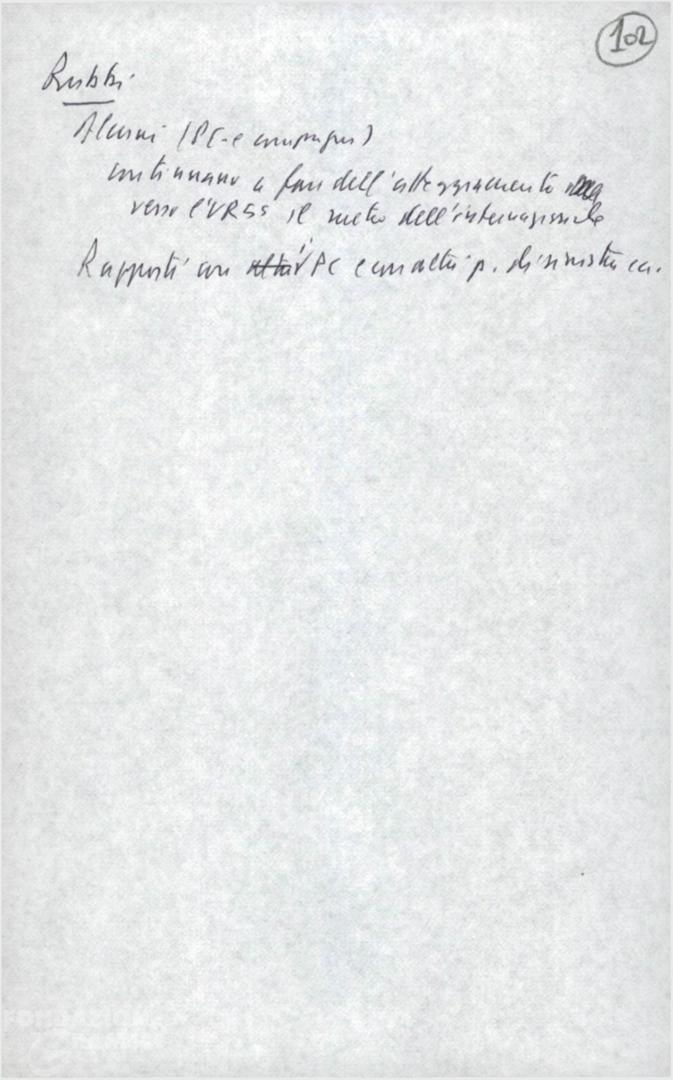 102
Rubbi
Alcuni (PC e compagni)
continuano a fare dell'atteggiamento
verso l'URSS il metro dell'internazionale
Rapporti con altri i PC e con altri p. di sinistra ecc.
FONDAZIONE
GRAMSCI